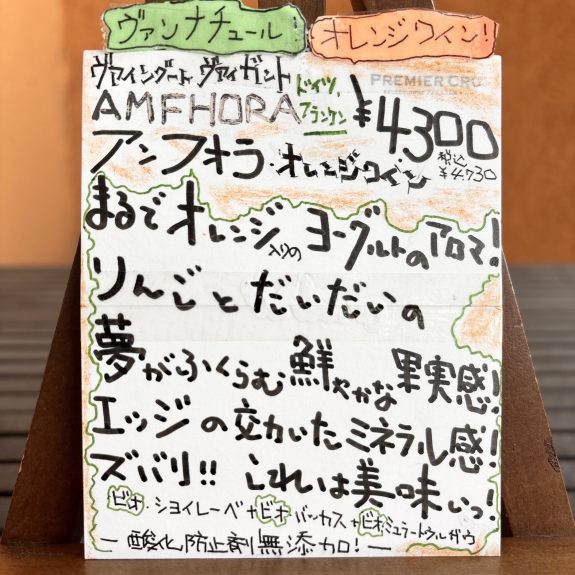 ヴァンナチュール
オレンジワイン!
PREMIER CRU
ヴァイングート ヴァイガント
ドイツ、フランケン
AMFHORA
¥4300
税込
¥4,730
アンフォラ・オレンジワイン
まるでオレンジ入りのヨーグルトのアロマ!
りんごとだいだいの
夢がふくらむ鮮やかな果実感!
エッジの効いたミネラル感!
ズバリ!! これは美味いっ!
ビオ・ショイレーベ+ビオバッカス+ビオミュラートゥルガウ
ー酸化防止剤無添加!ー